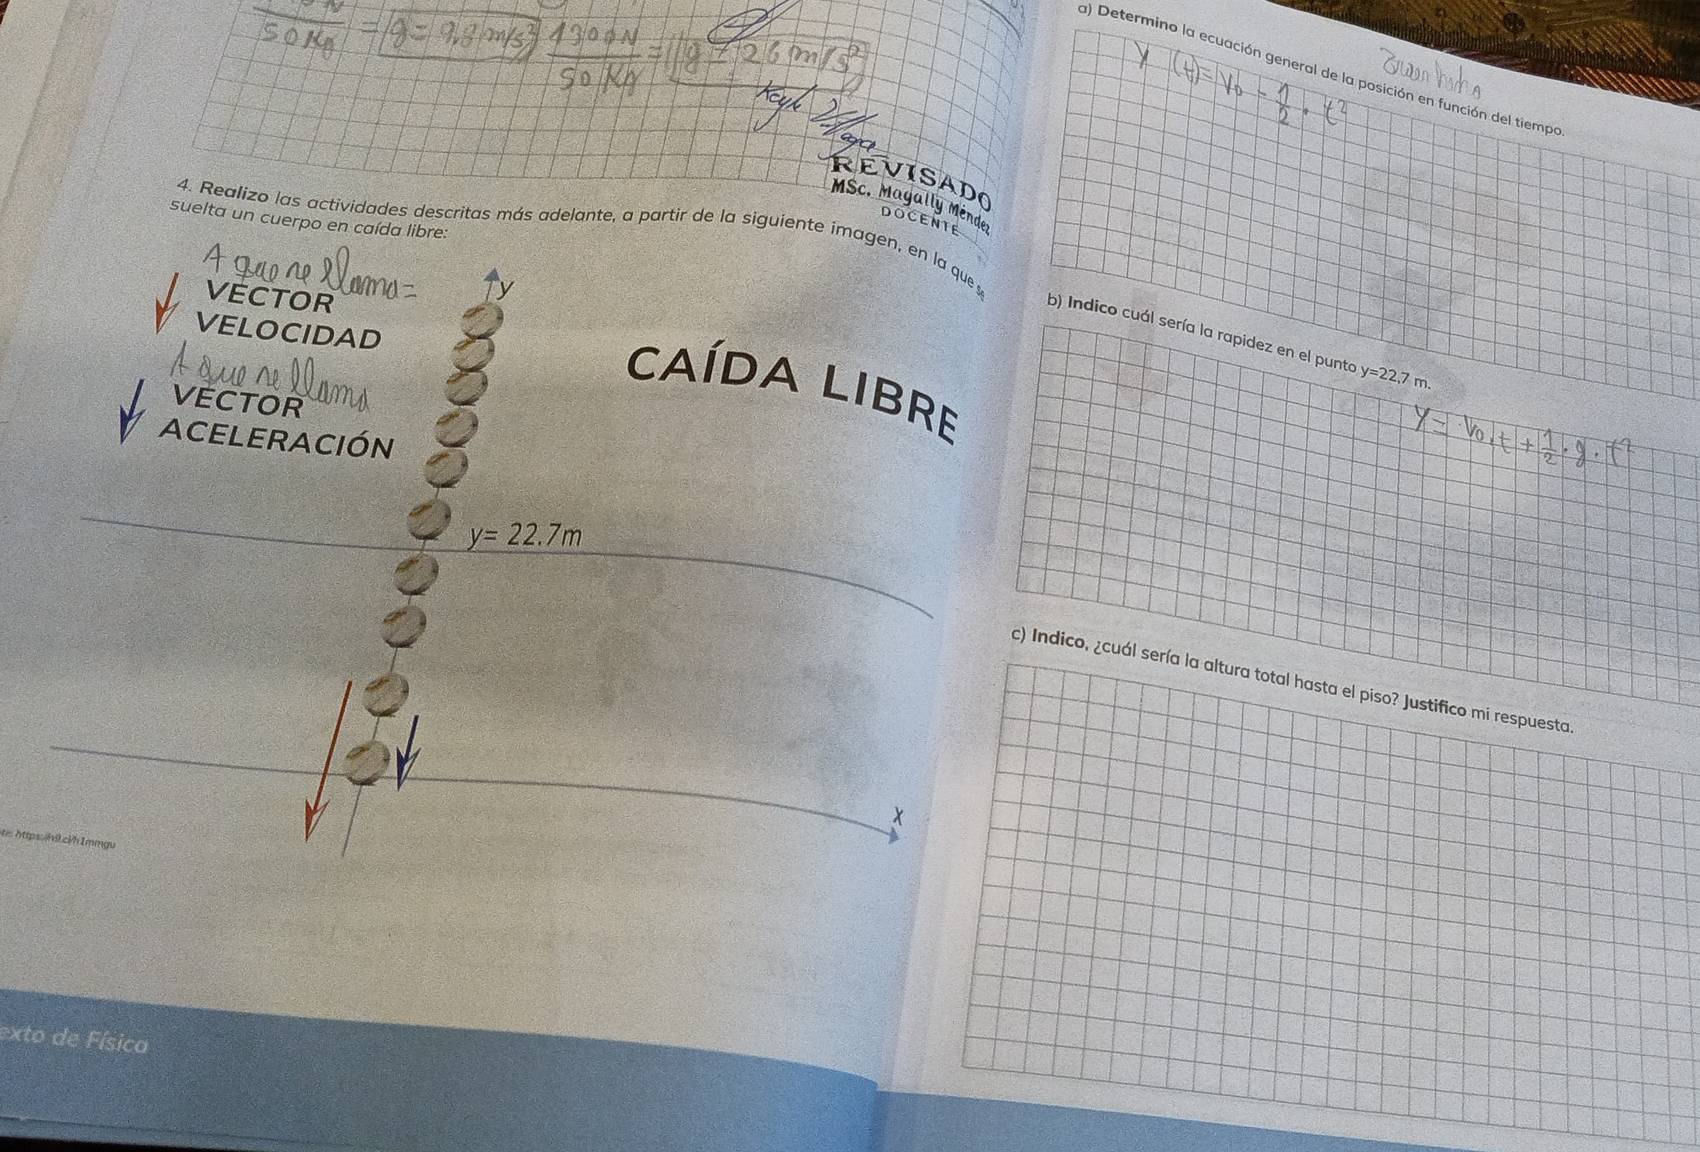 50Kg = g = 9,8 m/s² 1300N = g = 26 m/s²
50 Kg
REVISADO
MSc. Magally Méndez
DOCENTE
4. Realizo las actividades descritas más adelante, a partir de la siguiente imagen, en la que se
suelta un cuerpo en caída libre:
A que se llama =
VECTOR
VELOCIDAD
A que se llama
VECTOR
ACELERACIÓN
y
CAÍDA LIBRE
y= 22.7m
x
https://n9.cl/h1mmgu
exto de Física
a) Determino la ecuación general de la posición en función del tiempo.
y (t) = v₀ - 1/2 . t²
b) Indico cuál sería la rapidez en el punto y=22,7 m.
y = v₀.t + 1/2 . g . t²
c) Indico, ¿cuál sería la altura total hasta el piso? Justifico mi respuesta.